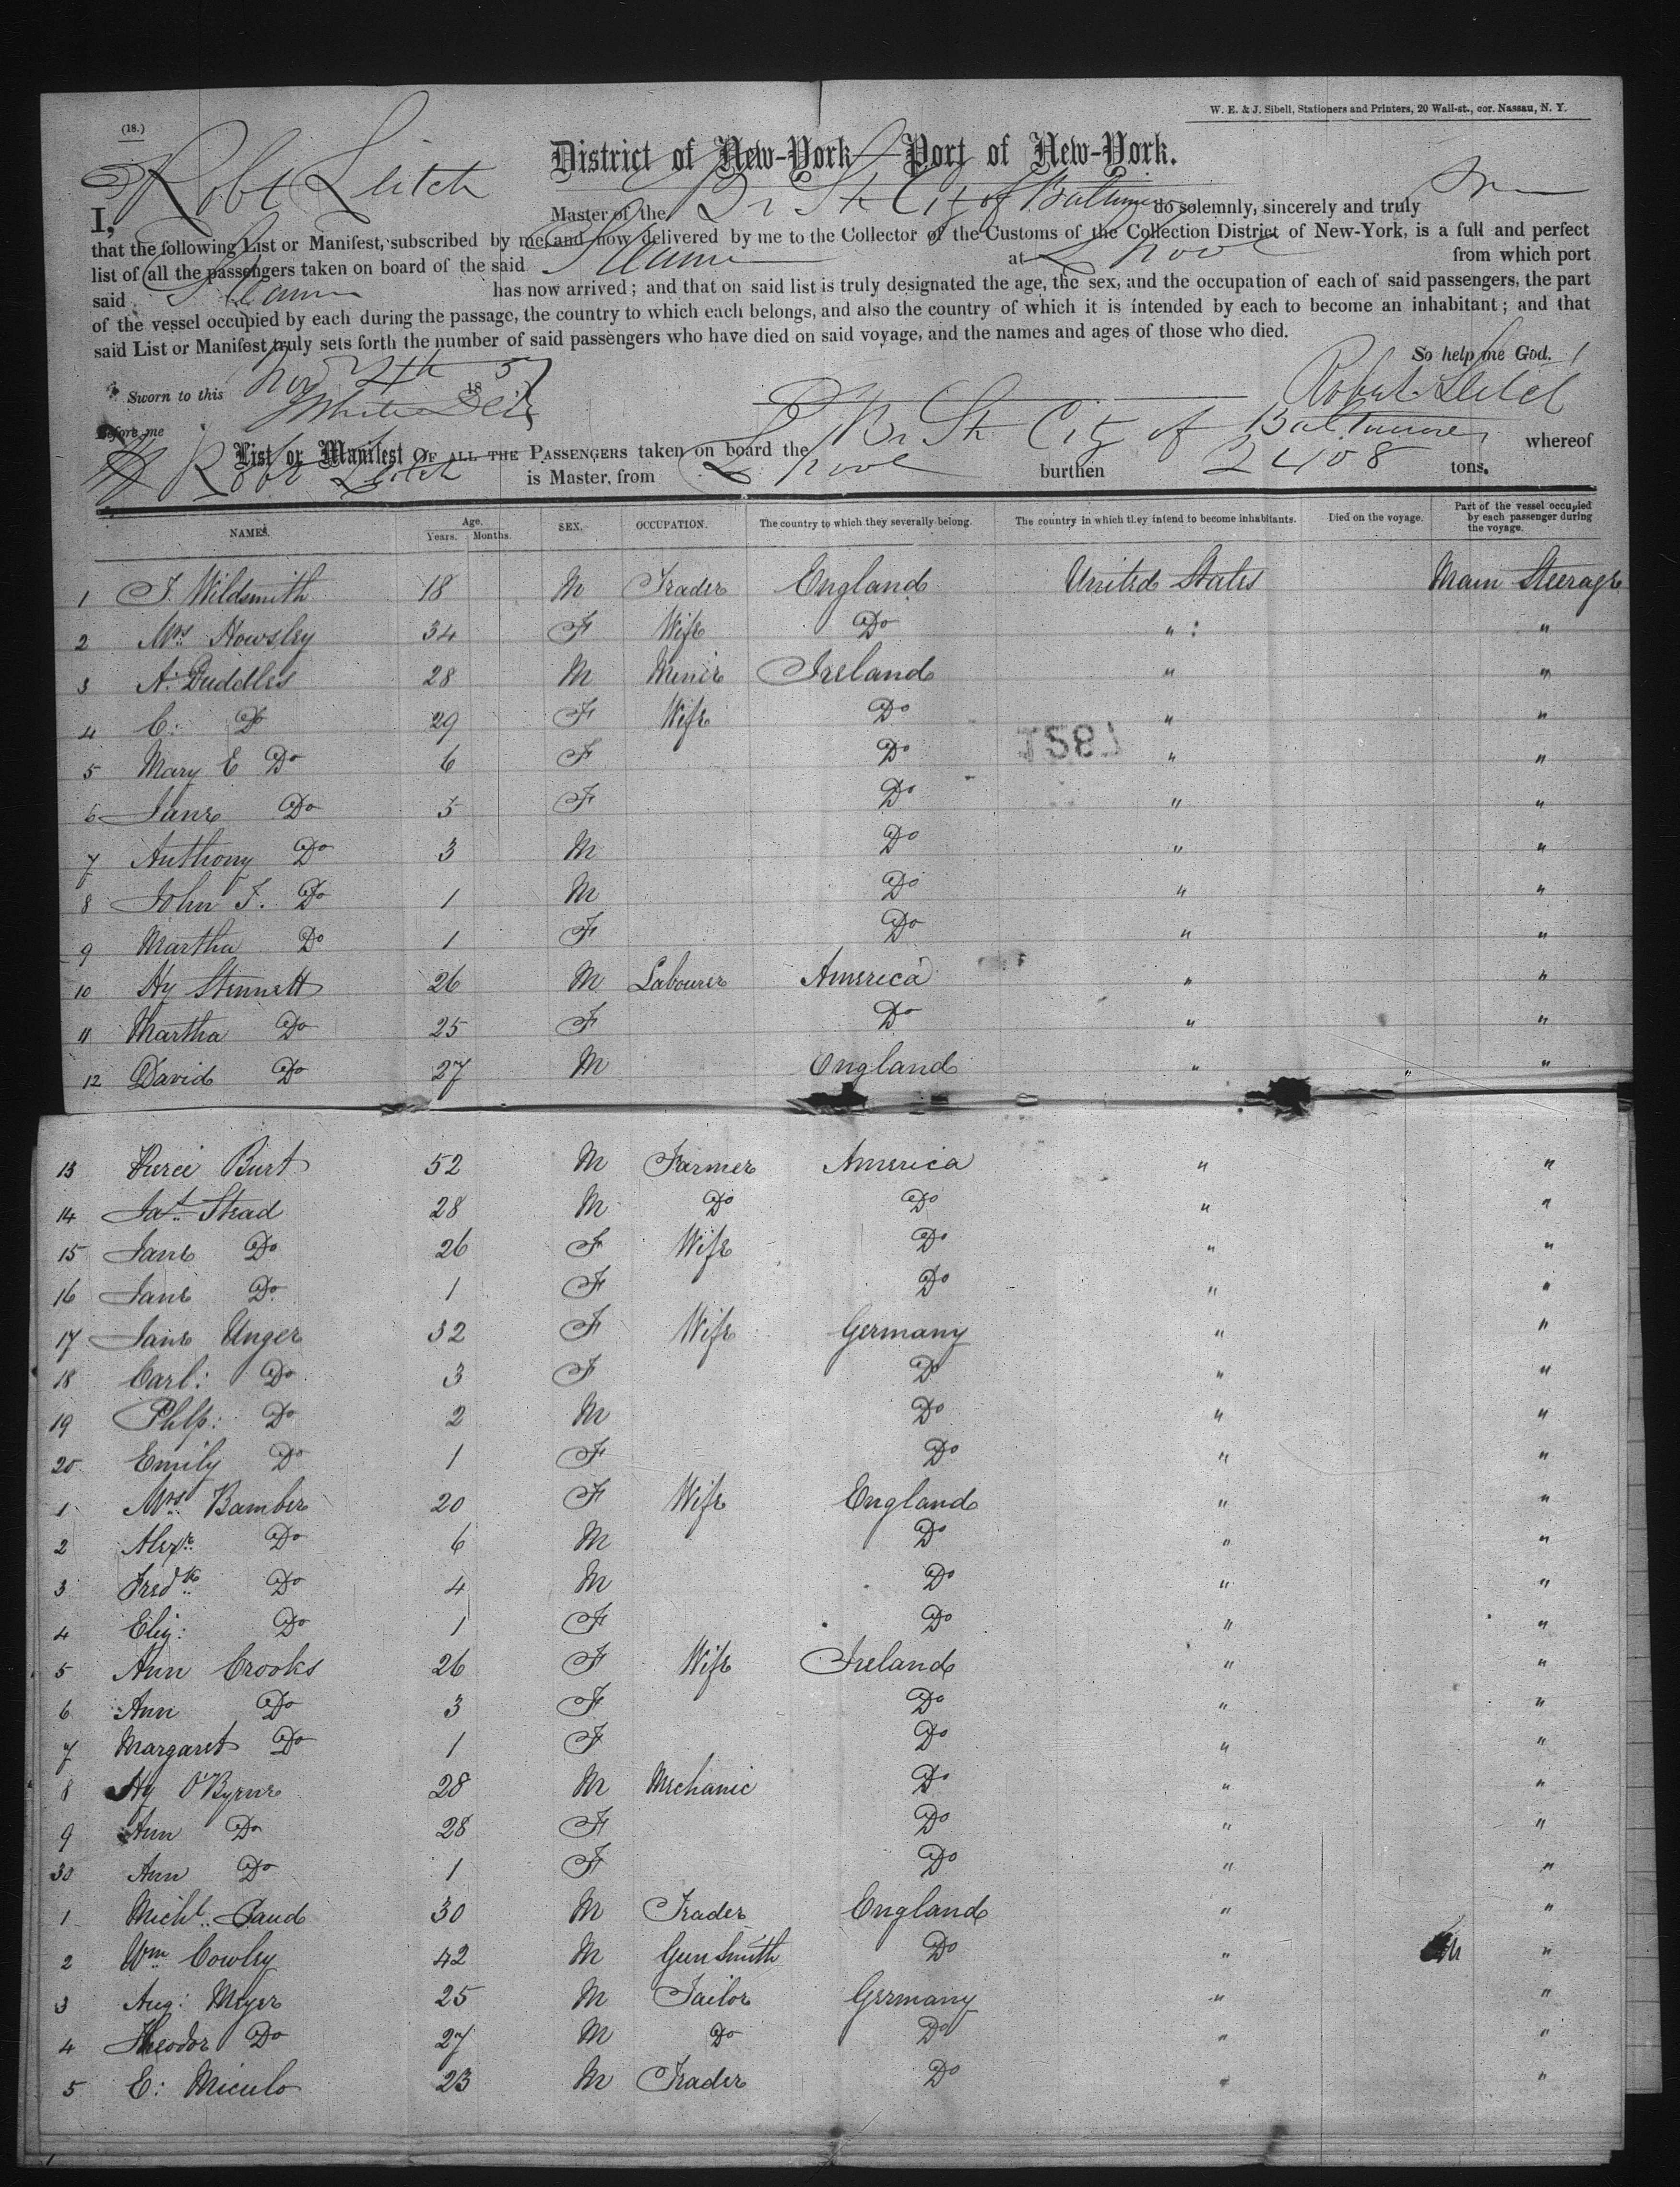 W. E. & J. Sibell, Stationers and Printers, 20 Wall-st., cor. Nassau, N. Y.
(18.)
District of New-York—Port of New-York.
I, Robt Leitch Master of the Br St City of Baltimore do solemnly, sincerely and truly
that the following List or Manifest, subscribed by me, and now delivered by me to the Collector of the Customs of the Collection District of New-York, is a full and perfect
list of all the passengers taken on board of the said Steamer at L'pool from which port
said Steamer has now arrived; and that on said list is truly designated the age, the sex, and the occupation of each of said passengers, the part
of the vessel occupied by each during the passage, the country to which each belongs, and also the country of which it is intended by each to become an inhabitant; and that
said List or Manifest truly sets forth the number of said passengers who have died on said voyage, and the names and ages of those who died.
So help me God.
Sworn to this Nov 24th 185 Robert Leitch
Before me
List or Manifest OF ALL THE PASSENGERS taken on board the Br St City of Baltimore whereof
Robt Leitch is Master, from L'pool burthen 2408 tons.
NAMES. Age. Years. Months. SEX. OCCUPATION. The country to which they severally belong. The country in which they intend to become inhabitants. Died on the voyage. Part of the vessel occupied by each passenger during the voyage.
1 J. Wildsmith 18 M Trader England United States Main Steerage
2 Mrs Howsley 34 F Wife Do " "
3 A: Duddles 28 M Miner Ireland " "
4 C: Do 29 F Wife Do " "
5 Mary E Do 6 F Do " "
6 Jane Do 5 F Do " "
7 Anthony Do 3 M Do " "
8 John J. Do 1 M Do " "
9 Martha Do 1 F Do " "
10 Hy Stennett 26 M Labourer America " "
11 Martha Do 25 F Do " "
12 David Do 27 M England " "
13 Burt 52 M Farmer America " "
14 Stead 28 M Do Do " "
15 Jane Do 26 F Wife Do " "
16 Jane Do 1 F Do " "
17 Jane Unger 32 F Wife Germany " "
18 Carl: Do 3 F Do " "
19 Phlp: Do 2 M Do " "
20 Emily Do 1 F Do " "
1 Mrs Bamber 20 F Wife England " "
2 Alexr Do 6 M Do " "
3 Fredk Do 4 M Do " "
4 Eliz: Do 1 F Do " "
5 Ann Crooks 26 F Wife Ireland " "
6 Ann Do 3 F Do " "
7 Margaret Do 1 F Do " "
8 Hy O'Byrne 28 M Mechanic Do " "
9 Ann Do 28 F Do " "
30 Ann Do 1 F Do " "
1 Michl 30 M Trader England " "
2 Wm Cowley 42 M Gun Smith Do " "
3 Aug: Meyer 25 M Tailor Germany " "
4 Theodor Do 27 M Do Do " "
5 E: Miculo 23 M Trader Do " "